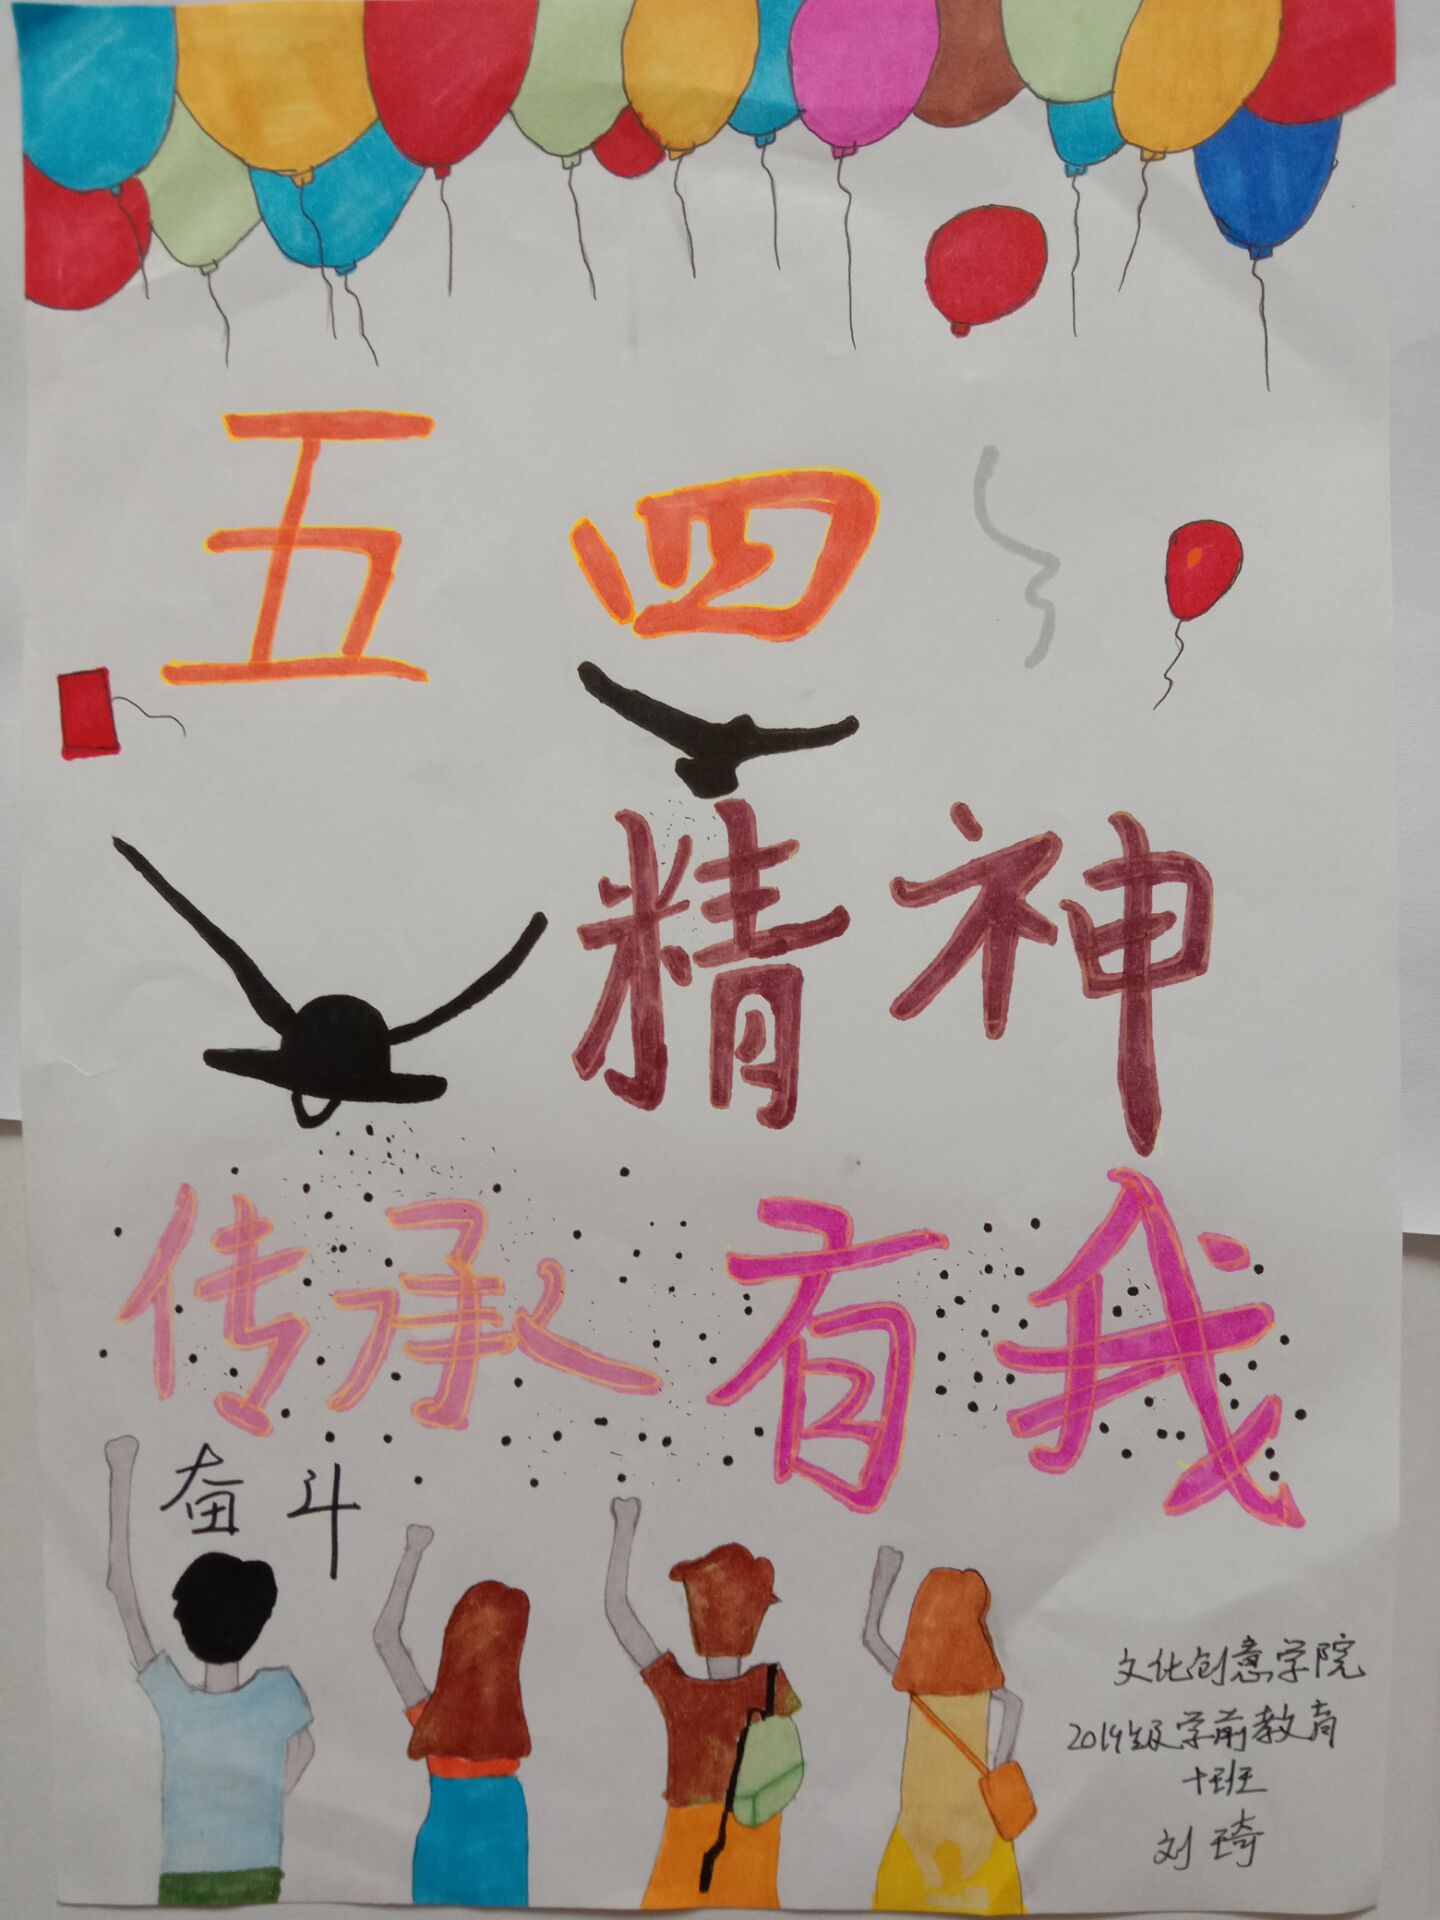 五四
精神
传承有我
奋斗
文化创意学院
2019级学前教育
十班
刘琦